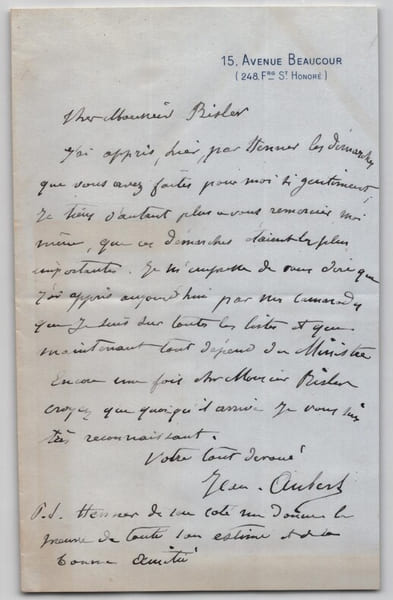 15, AVENUE BEAUCOUR
(248, FBG ST HONORÉ)
Cher Monsieur Risler
J'ai appris, hier, par Henner les démarches
que vous avez faites pour moi si gentiment,
Je tiens d'autant plus a vous remercier moi
même, que ces démarches étaient les plus
importantes. Je m'empresse de vous dire que
j'ai appris aujourd'hui par mes camarades
que Je suis sur toutes les listes et que
maintenant tout dépend du Ministre
Encore une fois cher Monsieur Risler
croyez que quoiqu'il arrive Je vous suis
très reconnaissant.
Votre tout dévoué
Jean-Aubert
P.S. Henner de son coté me donne la
preuve de toute son estime et de sa
bonne amitié